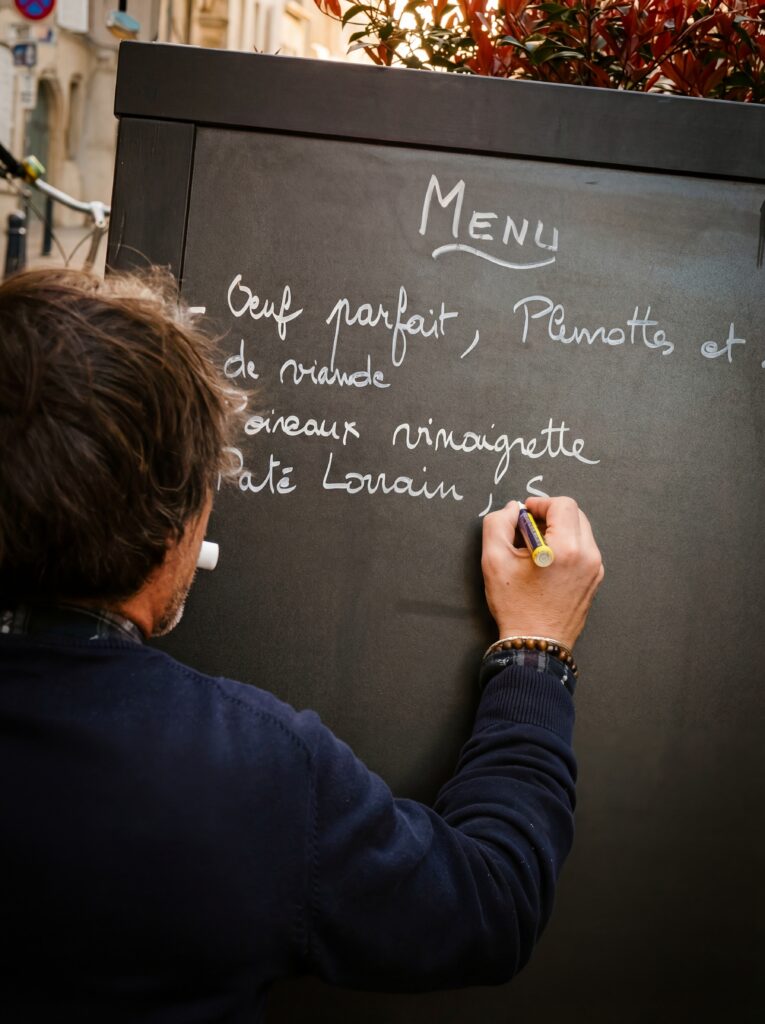 MENU
- Œuf parfait, Pleurottes et
de viande
Poireaux vinaigrette
Paté Lorrain, S